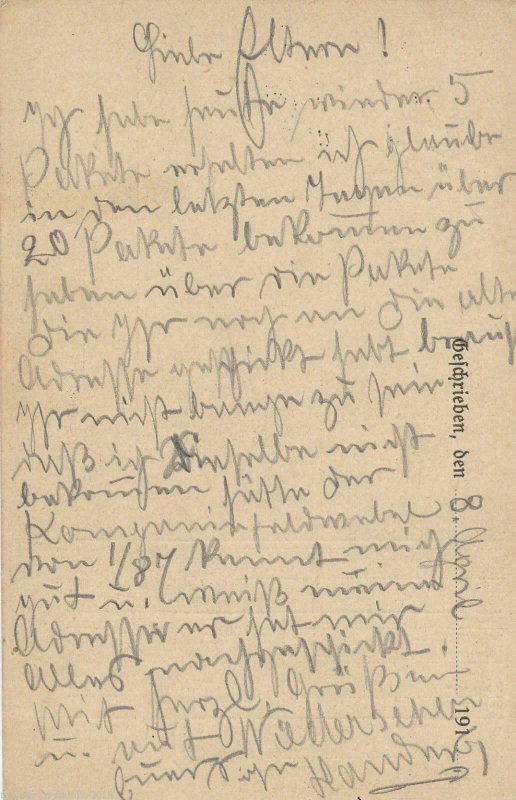 Liebe Eltern!
Ich habe heute wieder 5
Pakete erhalten ich glaube
in den letzten Tagen über
20 Pakete bekommen zu
haben über die Pakete
die Ihr noch an die alte
Adresse geschickt habt braucht
Ihr nicht bange zu sein
daß ich dieselbe nicht
bekommen hätte der
Kompaniefeldwebel
von 1/87 kennt mich
gut u. weiß meine
Adresse er hat mir
Alles nachgeschickt.
Mit herzl. Grüßen
u. auf Wiedersehen
Euer Sohn
Geschrieben, den 8. April 191